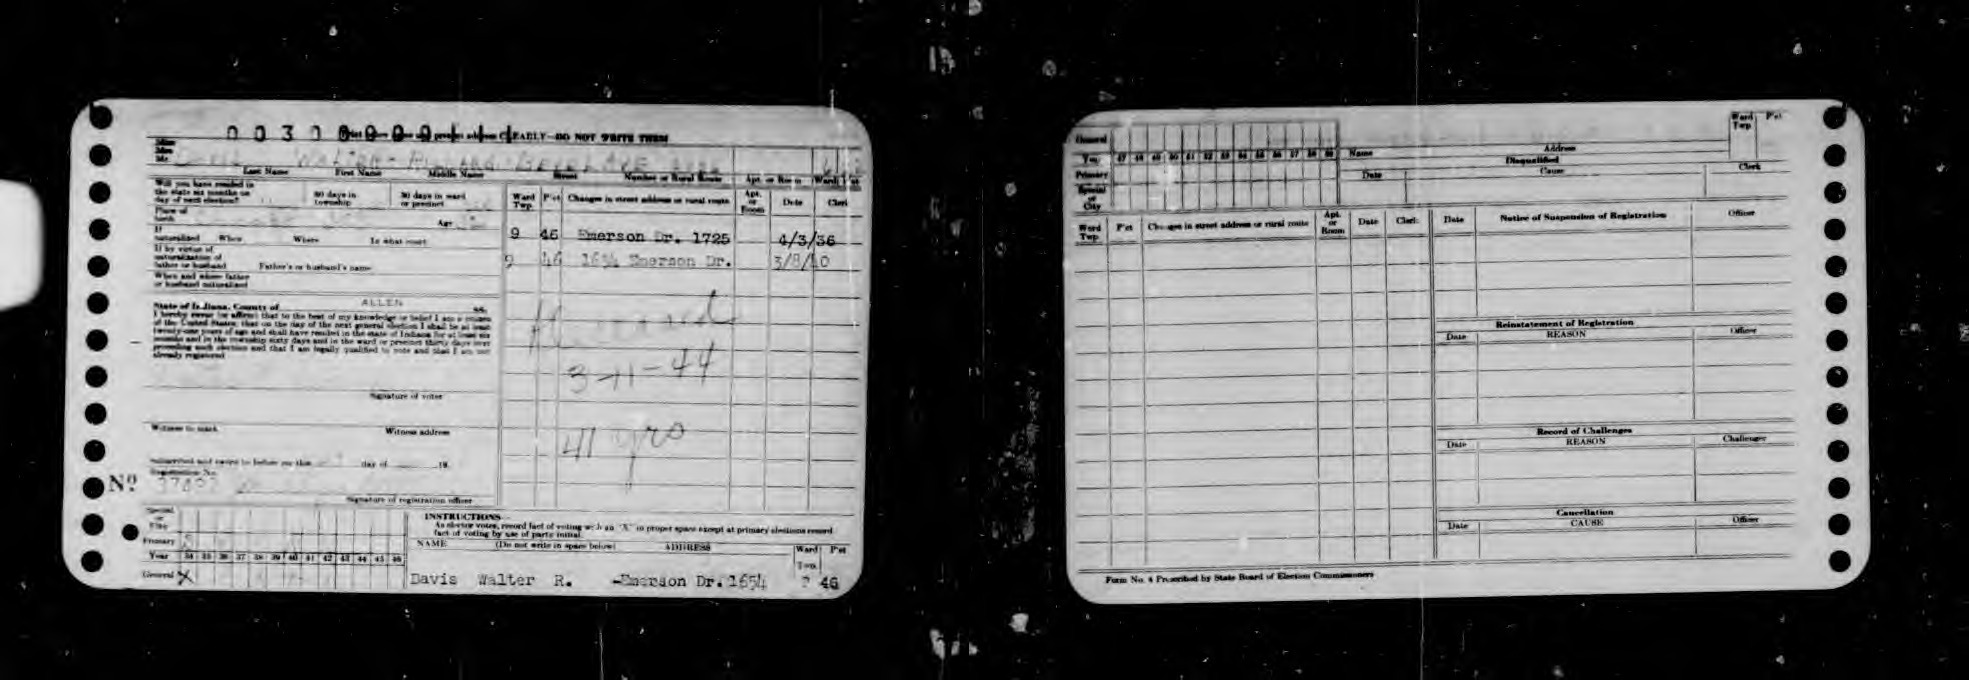 0 0 3 0 0 0 0 0
CLEARLY—DO NOT WRITE THEM
Miss
Mrs
Mr
WALTER
Last Name First Name Middle Name Street Number or Rural Route Apt. or Room Ward Pct
Will you have resided in
the state six months on
day of next election?
60 days in
township
30 days in ward
or precinct
Ward
Twp. P'ct Changes in street address or rural route Apt.
or
Room Date Clerk
Place of
birth Age
If
naturalized When Where In what court
9 46 Emerson Dr. 1725 4/3/36
If by virtue of
naturalization of
father or husband Father's or husband's name
9 46 1654 Emerson Dr. 3/8/40
When and where father
or husband naturalized
ALLEN
State of Indiana, County of ss.
I hereby swear (or affirm) that to the best of my knowledge or belief I am a citizen
of the United States; that on the day of the next general election I shall be at least
twenty-one years of age and shall have resided in the state of Indiana for at least six
months and in the township sixty days and in the ward or precinct thirty days next
preceding such election and that I am legally qualified to vote and that I am not
already registered
3-11-44
41 yrs
Signature of voter
Witness to mark Witness address
Subscribed and sworn to before me this day of 19
Registration No.
Nº
Signature of registration officer
Special
or
City
Primary
Year 34 35 36 37 38 39 40 41 42 43 44 45 46
General X
INSTRUCTIONS
As elector votes, record fact of voting with an "X" in proper space except at primary elections record
fact of voting by use of party initial.
NAME (Do not write in space below) ADDRESS Ward
Twp. P'ct
Davis Walter R. -Emerson Dr. 1654 46
General
Year 47 48 49 50 51 52 53 54 55 56 57 58 59
Primary
Special
or
City
Name Address
Ward
Twp P'ct
Disqualified
Date Cause Clerk
Ward
Twp. P'ct Changes in street address or rural route Apt.
or
Room Date Clerk
Date Notice of Suspension of Registration Officer
Reinstatement of Registration
Date REASON Officer
Record of Challenges
Date REASON Challenger
Cancellation
Date CAUSE Officer
Form No. 4 Prescribed by State Board of Election Commissioners